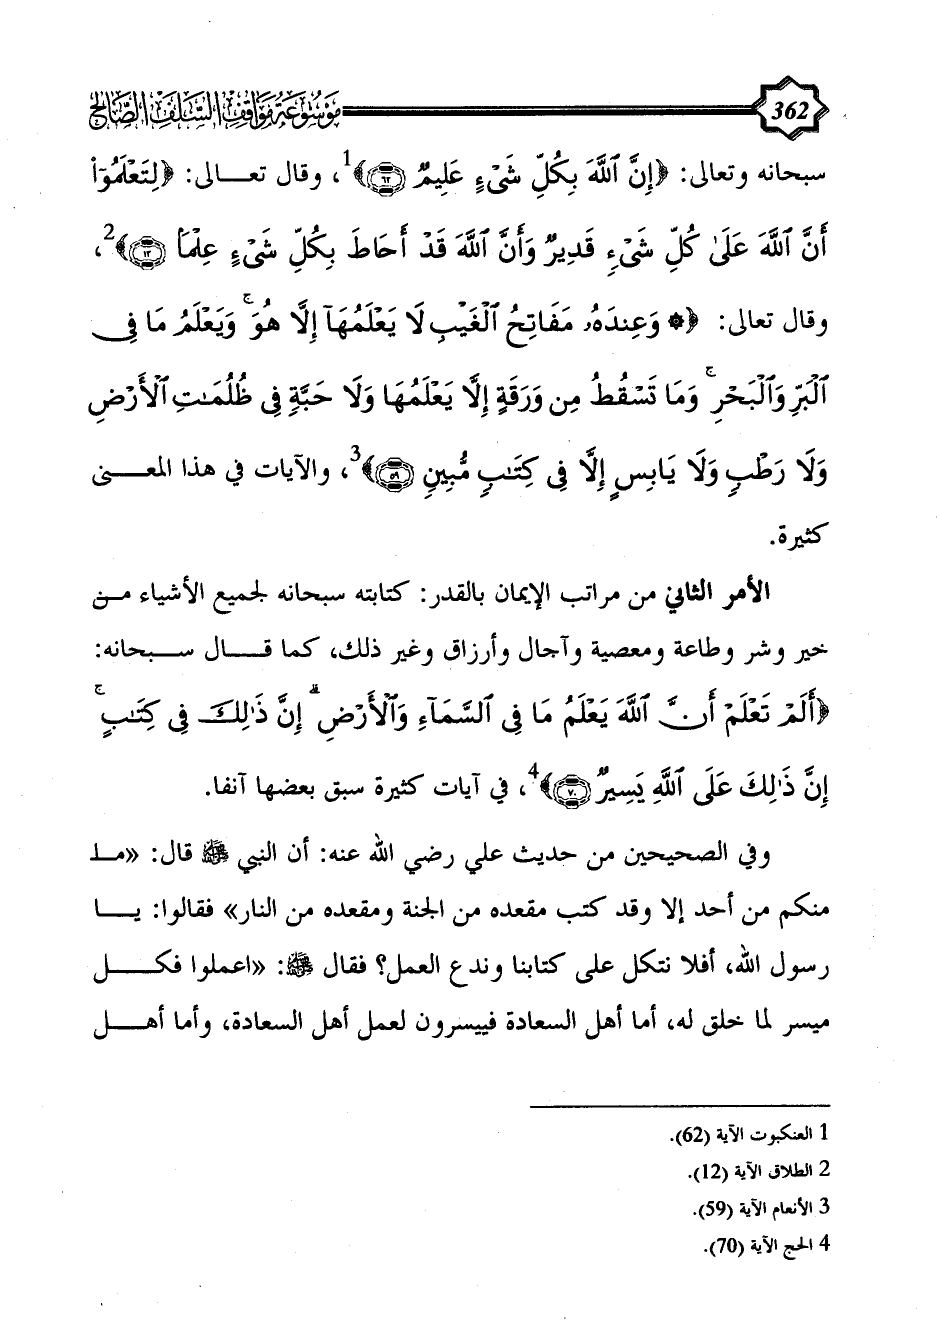 موسوعة مواقف السلف الصالح 362
سبحانه وتعالى: ﴿إِنَّ ٱللَّهَ بِكُلِّ شَيْءٍ عَلِيمٌ ۝٦٢﴾1، وقال تعالى: ﴿لِتَعْلَمُوٓا۟
أَنَّ ٱللَّهَ عَلَىٰ كُلِّ شَيْءٍ قَدِيرٌ وَأَنَّ ٱللَّهَ قَدْ أَحَاطَ بِكُلِّ شَيْءٍ عِلْمًۢا ۝١٢﴾2،
وقال تعالى: ﴿۞ وَعِندَهُۥ مَفَاتِحُ ٱلْغَيْبِ لَا يَعْلَمُهَآ إِلَّا هُوَ ۚ وَيَعْلَمُ مَا فِى
ٱلْبَرِّ وَٱلْبَحْرِ ۚ وَمَا تَسْقُطُ مِن وَرَقَةٍ إِلَّا يَعْلَمُهَا وَلَا حَبَّةٍ فِى ظُلُمَـٰتِ ٱلْأَرْضِ
وَلَا رَطْبٍ وَلَا يَابِسٍ إِلَّا فِى كِتَـٰبٍ مُّبِينٍ ۝٥٩﴾3، والآيات في هذا المعنى
كثيرة.
الأمر الثاني من مراتب الإيمان بالقدر: كتابته سبحانه لجميع الأشياء من
خير وشر وطاعة ومعصية وآجال وأرزاق وغير ذلك، كما قال سبحانه:
﴿أَلَمْ تَعْلَمْ أَنَّ ٱللَّهَ يَعْلَمُ مَا فِى ٱلسَّمَآءِ وَٱلْأَرْضِ ۗ إِنَّ ذَٰلِكَ فِى كِتَـٰبٍ ۚ
إِنَّ ذَٰلِكَ عَلَى ٱللَّهِ يَسِيرٌ ۝٧٠﴾4، في آيات كثيرة سبق بعضها آنفا.
وفي الصحيحين من حديث علي رضي الله عنه: أن النبي ﷺ قال: «ما
منكم من أحد إلا وقد كتب مقعده من الجنة ومقعده من النار» فقالوا: يا
رسول الله، أفلا نتكل على كتابنا وندع العمل؟ فقال ﷺ: «اعملوا فكل
ميسر لما خلق له، أما أهل السعادة فييسرون لعمل أهل السعادة، وأما أهل
1 العنكبوت الآية (62).
2 الطلاق الآية (12).
3 الأنعام الآية (59).
4 الحج الآية (70).